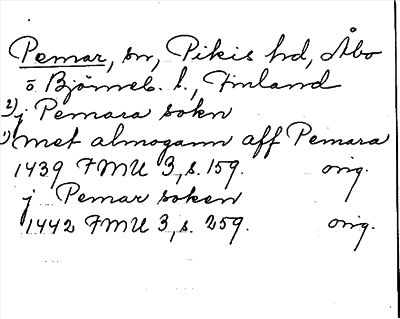 Pemar, sn, Pikis hd, Åbo
o. Björneb. l., Finland
2) j Pemara sokn
1) met almogann aff Pemara
1439 FMU 3, s. 159. orig.
j Pemar soken
1442 FMU 3, s. 259. orig.